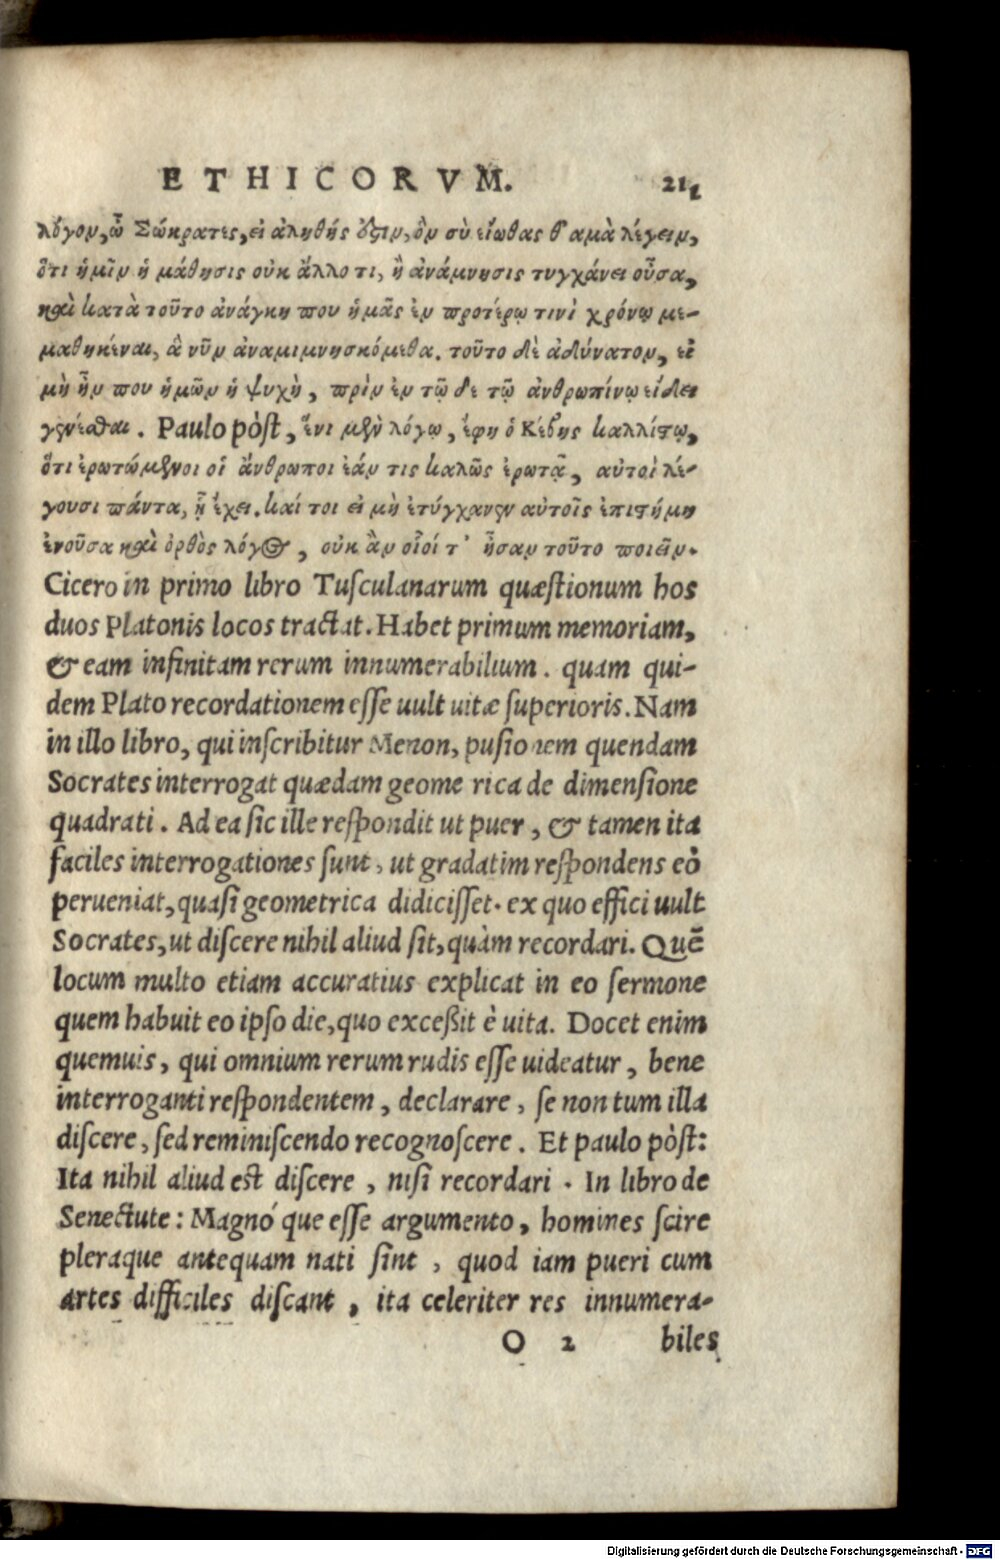 ETHICORVM. 211
λόγον, ὦ Σώκρατες, εἰ ἀληθής ὅστιν, ὃν σὺ εἴωθας θαμὰ λέγειν,
ὅτι ἡμῖν ἡ μάθησις οὐκ ἄλλο τι, ἢ ἀνάμνησις τυγχάνει οὖσα,
καὶ κατὰ τοῦτο ἀνάγκη που ἡμᾶς ἐν προτέρῳ τινὶ χρόνῳ με-
μαθηκέναι, ἃ νῦν ἀναμιμνησκόμεθα. τοῦτο δὲ ἀδύνατον, εἰ
μὴ ἦν που ἡμῶν ἡ ψυχὴ, πρὶν ἐν τῷ δε τῷ ἀνθρωπίνῳ εἴδει
γενέσθαι. Paulo pòſt, ἕνι μὲν λόγῳ, ἔφη ὁ Κέβης καλλίστῳ,
ὅτι ἐρωτώμενοι οἱ ἄνθρωποι ἐάν τις καλῶς ἐρωτᾷ, αὐτοὶ λέ-
γουσι πάντα, ᾗ ἔχει. καί τοι εἰ μὴ ἐτύγχανεν αὐτοῖς ἐπιστήμη
ἐνοῦσα καὶ ὀρθὸς λόγος, οὐκ ἂν οἷοί τ' ἦσαν τοῦτο ποιεῖν.
Cicero in primo libro Tuſculanarum quæſtionum hos
duos Platonis locos tractat. Habet primum memoriam,
& eam infinitam rerum innumerabilium. quam qui-
dem Plato recordationem eſſe uult uitæ ſuperioris. Nam
in illo libro, qui inſcribitur Menon, puſionem quendam
Socrates interrogat quædam geome rica de dimenſione
quadrati. Ad ea ſic ille reſpondit ut puer, & tamen ita
faciles interrogationes ſunt, ut gradatim reſpondens eò
perueniat, quaſi geometrica didiciſſet. ex quo effici uult
Socrates, ut diſcere nihil aliud ſit, quàm recordari. Quē
locum multo etiam accuratius explicat in eo ſermone
quem habuit eo ipſo die, quo exceßit è uita. Docet enim
quemuis, qui omnium rerum rudis eſſe uideatur, bene
interroganti reſpondentem, declarare, ſe non tum illa
diſcere, ſed reminiſcendo recognoſcere. Et paulo pòſt:
Ita nihil aliud eſt diſcere, niſi recordari. In libro de
Senectute: Magnó que eſſe argumento, homines ſcire
pleraque antequam nati ſint, quod iam pueri cum
artes difficiles diſcant, ita celeriter res innumera-
O 2 biles
Digitalisierung gefördert durch die Deutsche Forschungsgemeinschaft - DFG